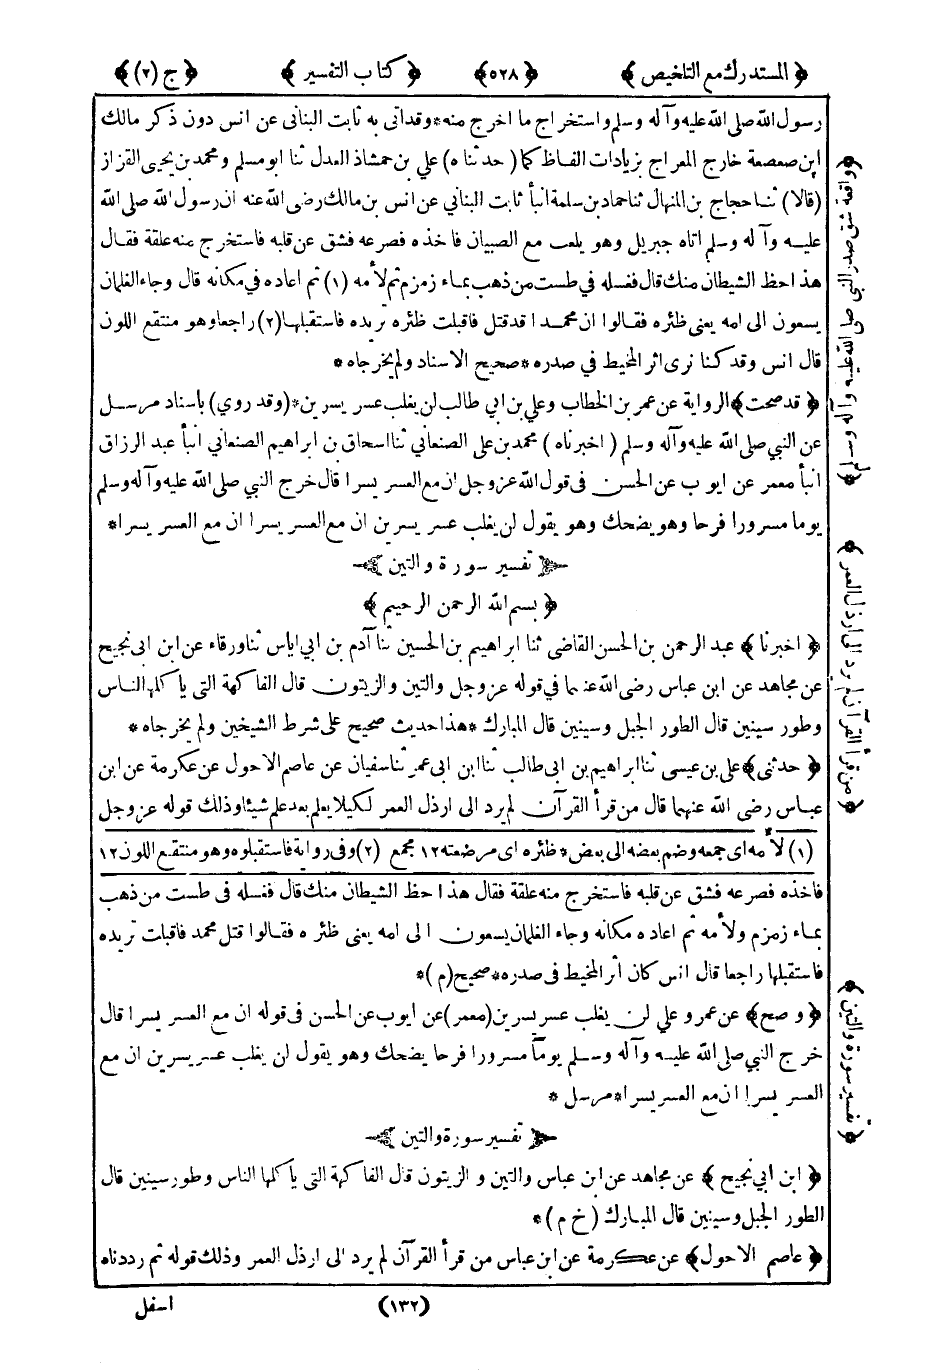 ﴿ المستدرك مع التلخيص ﴾ ﴿ ٥٢٨ ﴾ ﴿ كتاب التفسير ﴾ ﴿ ج (٢) ﴾
رسول الله صلى الله عليه وآله وسلم واستخراج ما اخرج منه * وقد اتى به ثابت البنانى عن انس دون ذكر مالك
ابن صعصعة خارج المعراج بزيادات الفاظ كما ( حدثناه ) علي بن حمشاذ العدل ثنا ابو مسلم و محمد بن يحيى القزاز
(قالا) ثنا حجاج بن المنهال ثنا حماد بن سلمة أنبأ ثابت البناني عن انس بن مالك رضى الله عنه ان رسول الله صلى الله
عليه وآله وسلم اتاه جبريل وهو يلعب مع الصبيان فاخذه فصرعه فشق عن قلبه فاستخرج منه علقة فقال
هذا حظ الشيطان منك قال فغسله في طست من ذهب بماء زمزم ثم لأمه (١) ثم اعاده في مكانه قال وجاء الغلمان
يسعون الى امه يعنى ظئره فقالوا ان محمدا قد قتل فاقبلت ظئره تريده فاستقبلها (٢) راجعا وهو منتقع اللون
قال انس وقد كنا نرى اثر المخيط في صدره * صحيح الاسناد ولم يخرجاه *
﴿ قد صحت ﴾ الرواية عن عمر بن الخطاب وعلي بن ابي طالب لن يغلب عسر يسرين * (وقد روي) باسناد مرسل
عن النبي صلى الله عليه وآله وسلم ( اخبرناه ) محمد بن على الصنعاني ثنا اسحاق بن ابراهيم الصنعاني انبأ عبد الرزاق
انبأ معمر عن ايوب عن الحسن فى قول الله عز وجل ان مع العسر يسرا قال خرج النبي صلى الله عليه وآله وسلم
يوما مسرورا فرحا وهو يضحك وهو يقول لن يغلب عسر يسرين ان مع العسر يسرا ان مع العسر يسرا *
تفسير سورة والتين
﴿ بسم الله الرحمن الرحيم ﴾
﴿ اخبرنا ﴾ عبد الرحمن بن الحسن القاضى ثنا ابراهيم بن الحسين ثنا آدم بن ابي اياس ثنا ورقاء عن ابن ابى نجيح
عن مجاهد عن ابن عباس رضى الله عنهما في قوله عز وجل والتين والزيتون قال الفاكهة التى ياكلها الناس
وطور سينين قال الطور الجبل وسينين قال المبارك * هذا حديث صحيح على شرط الشيخين ولم يخرجاه *
﴿ حدثنى ﴾ على بن عيسى ثنا ابراهيم بن ابى طالب ثنا ابن ابى عمر ثنا سفيان عن عاصم الاحول عن عكرمة عن ابن
عباس رضى الله عنهما قال من قرأ القرآن لم يرد الى ارذل العمر لكيلا يعلم بعد علم شيئا وذلك قوله عز وجل
(١) لأمه اى جمعه وضم بعضه الى بعض * ظئره اى مرضعته ١٢ مجمع (٢) وفى رواية فاستقبلوه وهو منتقع اللون ١٢
فاخذه فصرعه فشق عن قلبه فاستخرج منه علقة فقال هذا حظ الشيطان منك قال فغسله فى طست من ذهب
بماء زمزم ولأمه ثم اعاده مكانه وجاء الغلمان يسعون الى امه يعنى ظئره فقالوا قتل محمد فاقبلت تريده
فاستقبلها راجعا قال انس كان أثر المخيط فى صدره * صحيح (م) *
﴿ وصح ﴾ عن عمر و علي لن يغلب عسر يسرين (معمر) عن ايوب عن الحسن فى قوله ان مع العسر يسرا قال
خرج النبي صلى الله عليه وآله وسلم يوما مسرورا فرحا يضحك وهو يقول لن يغلب عسر يسرين ان مع
العسر يسرا ان مع العسر يسرا * مرسل *
تفسير سورة والتين
﴿ ابن ابي نجيح ﴾ عن مجاهد عن ابن عباس والتين و الزيتون قال الفاكهة التى ياكلها الناس وطور سينين قال
الطور الجبل وسينين قال المبارك (خ م) *
﴿ عاصم الاحول ﴾ عن عكرمة عن ابن عباس من قرأ القرآن لم يرد الى ارذل العمر وذلك قوله ثم رددناه
(١٣٢) اسفل
﴿ واقعة شق صدر النبى صلى الله عليه وآله وسلم ﴾
﴿ من قرأ القرآن لم يرد الى ارذل العمر ﴾
﴿ تفسير سورة والتين ﴾